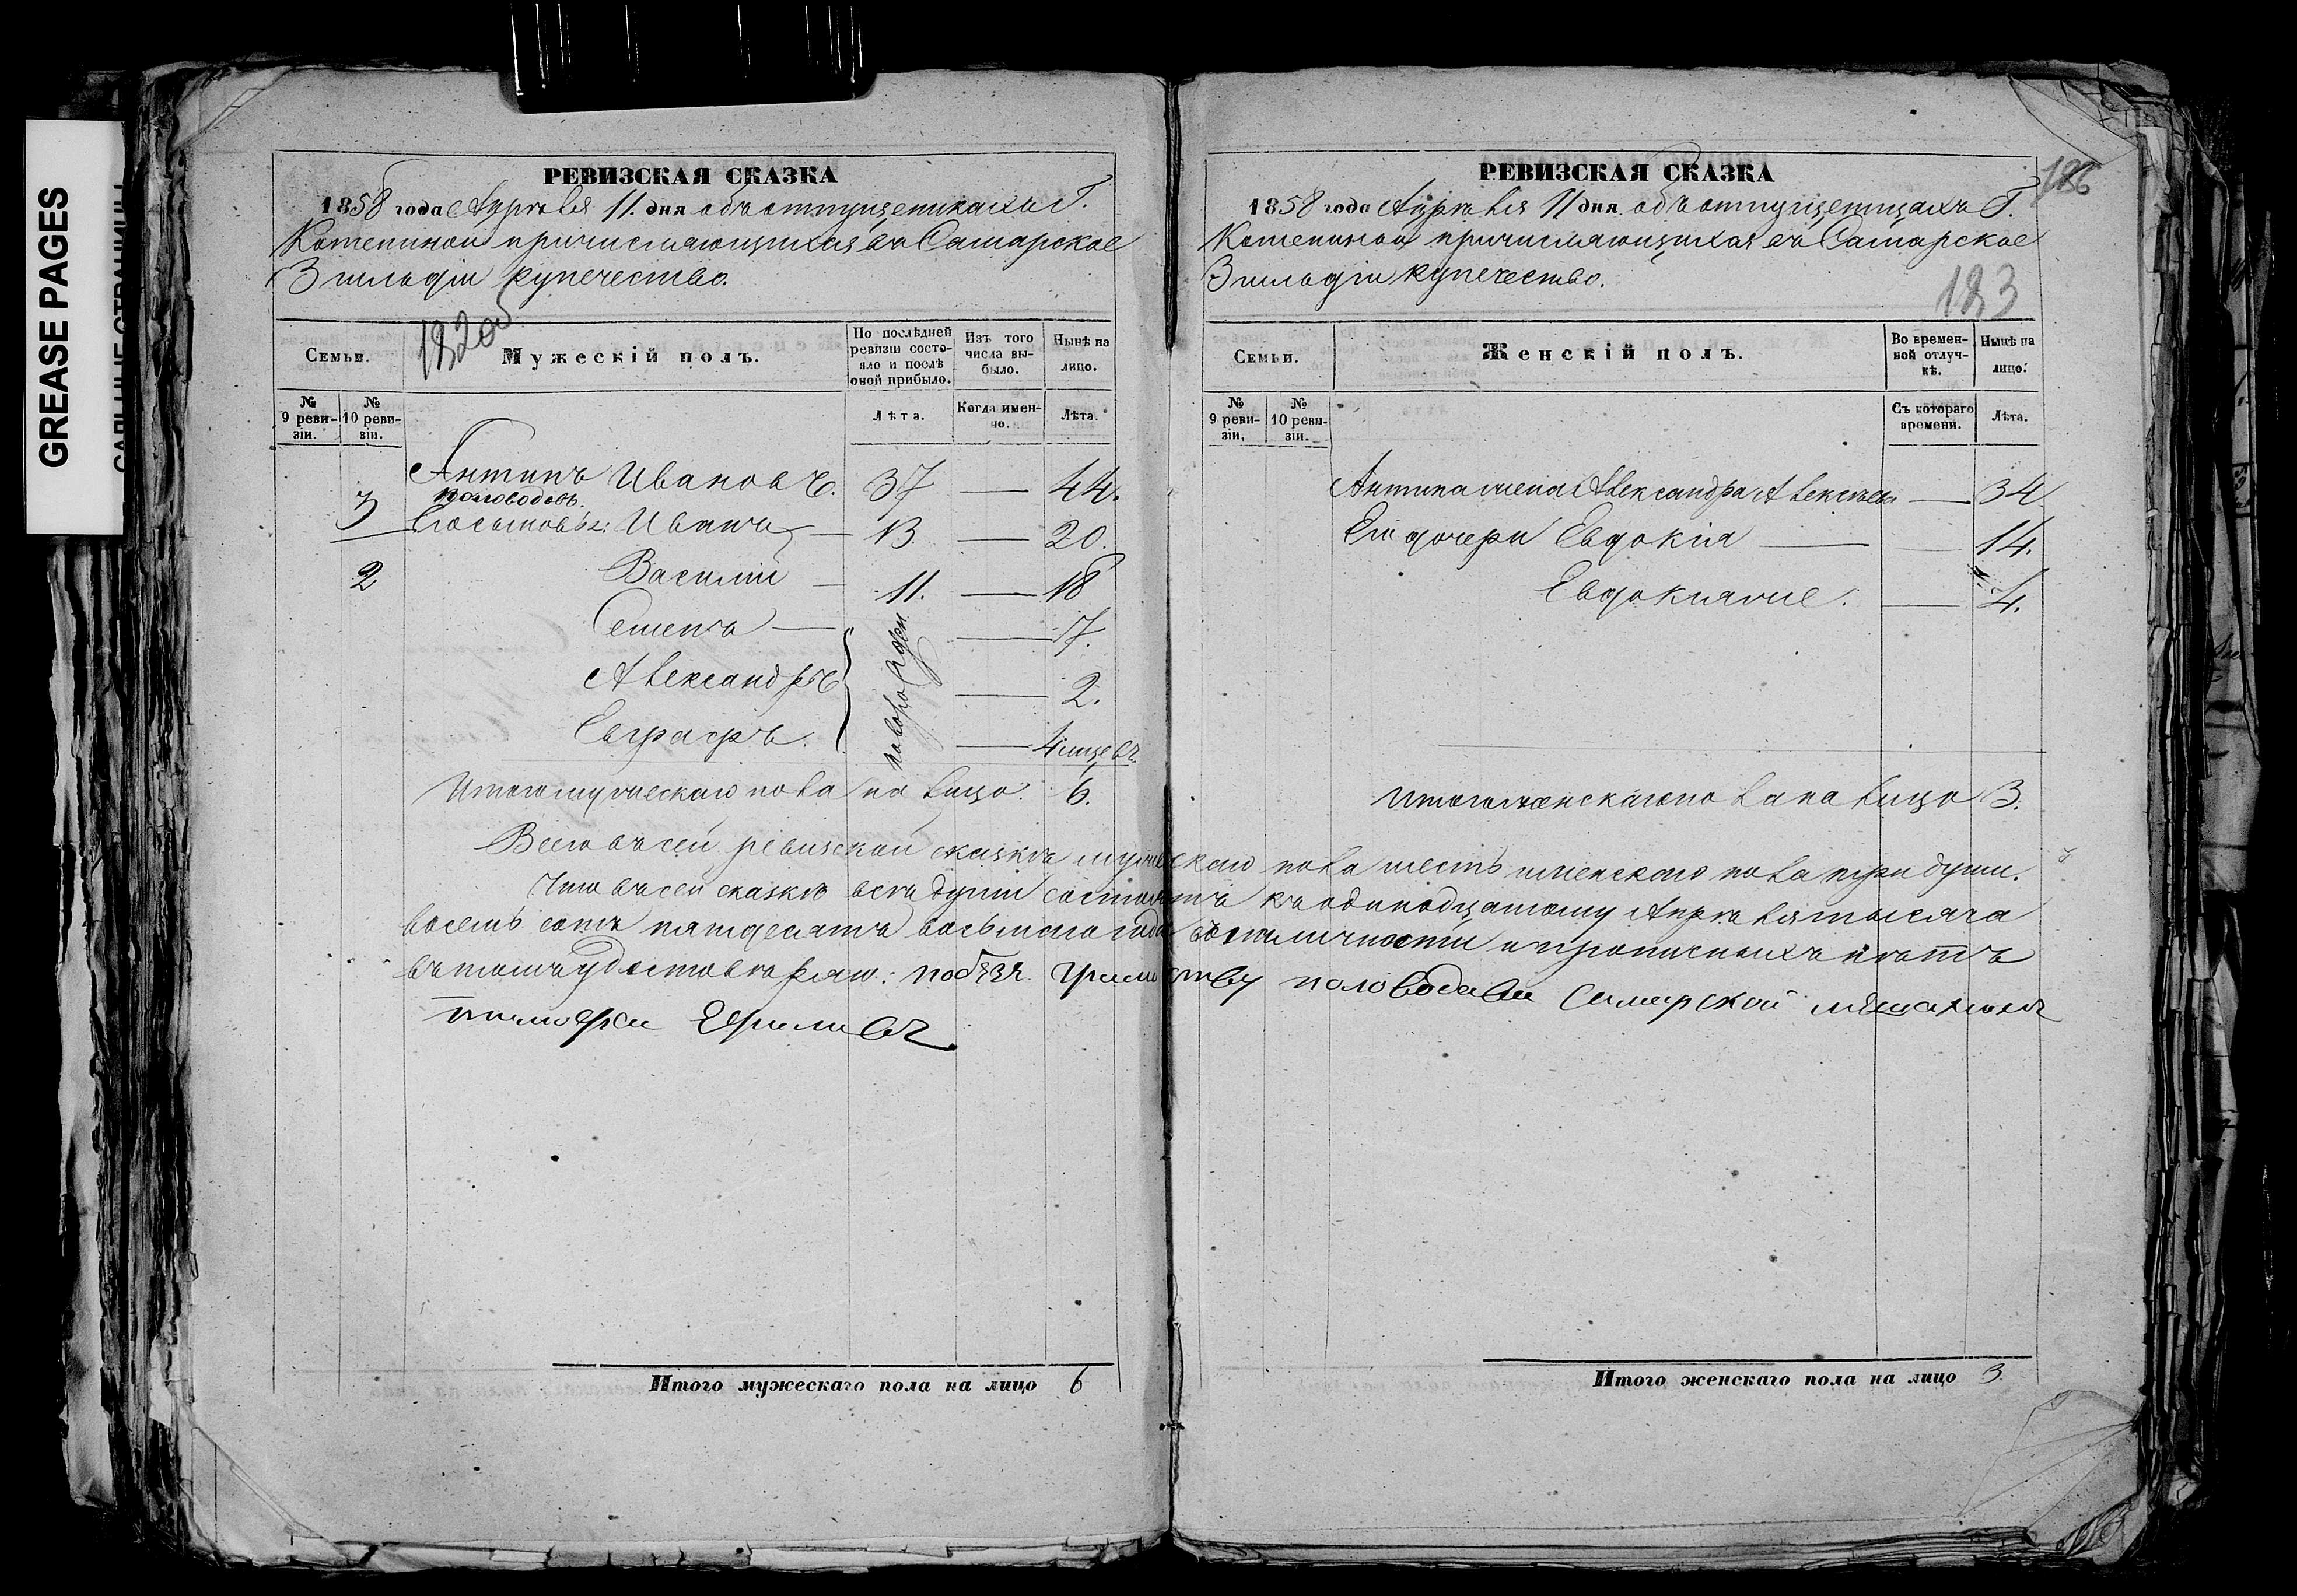 GREASE PAGES
РЕВИЗСКАЯ СКАЗКА
1858 года Апрѣля 11. дня объ отпущеникахъ Г.
Котениной причисляющихся въ Самарское
3 гильдіи купечество.
182об
Семьи.
Мужескій полъ.
По послѣдней ревизіи состояло и послѣ оной прибыло.
Изъ того числа выбыло.
Нынѣ на лицо.
№ 9 ревизіи.
№ 10 ревизіи.
Лѣта.
Когда именно.
Лѣта.
Антипъ Ивановъ. 37 — 44.
Половодовъ.
3
Иванъ — 13 — 20.
2 Василій — 11. — 18
Семенъ — 7.
Александръ — 2.
Евграфъ. — 4 месецъ
новорожден
Итого мужескаго пола на лицо. 6.
Всего въ сей ревизской сказкѣ мужескаго пола шесть женскаго пола три души.
Что въ сей сказкѣ всѣ души состоятъ къ одинадцатому Апрѣля тысяча
восемь сотъ пятдесятъ восьмого года въ наличности и прописныхъ нѣтъ
въ томъ удостовѣряю: Половодова Самарской мещанинъ
тимофеи Ефимовъ.
Итого мужескаго пола на лицо 6
РЕВИЗСКАЯ СКАЗКА
186
1858 года Апрѣля 11 дня объ отпущеницахъ Г.
Котениной причисляющихся въ Самарское
3 гильдіи купечество.
183
Семьи.
Женскій полъ.
Во временной отлучкѣ.
Нынѣ на лицо.
№ 9 ревизіи.
№ 10 ревизіи.
Съ котораго времени.
Лѣта.
Антипа жена Александра Алексѣева — 34
Его дочери Евдокія — 14.
Евдокія же. — 4.
Итого женскаго пола на лицо 3.
Итого женскаго пола на лицо 3.